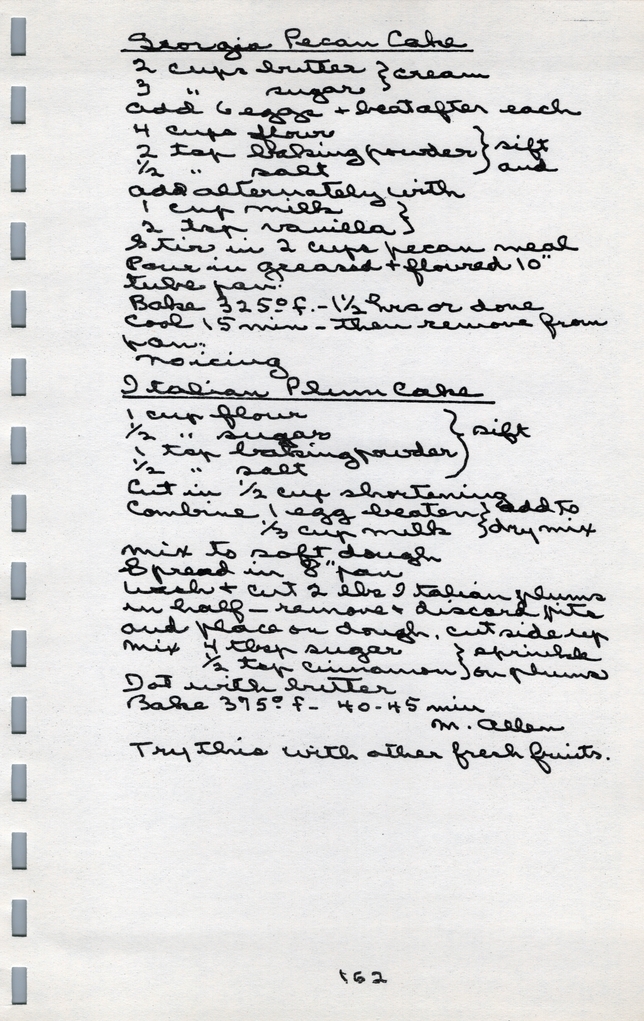 Georgia Pecan Cake
2 cups butter } cream
3 " sugar }
add 6 eggs + beat after each
4 cups flour
2 tsp baking powder } sift
1/2 " salt } and
add alternately with
1 cup milk }
2 tsp vanilla }
Stir in 2 cups pecan meal
Pour in greased + floured 10"
tube pan.
Bake 325° f. - 1 1/2 hrs or done
Cool 15 min - then remove from
pan.
no icing
Italian Plum Cake
1 cup flour
1/2 " sugar } sift
1 tsp baking powder
1/2 " salt
Cut in 1/2 cup shortening
Combine 1 egg beaten } add to
1/3 cup milk } dry mix
mix to soft dough
Spread in 8" pan
Wash + cut 2 lbs Italian plums
in half - remove + discard pits
and place on dough, cut side up
mix 4 tbsp sugar } sprinkle
1/2 tsp cinnamon } on plums
Dot with butter
Bake 375° f - 40-45 min
M. Allen
Try this with other fresh fruits.
162